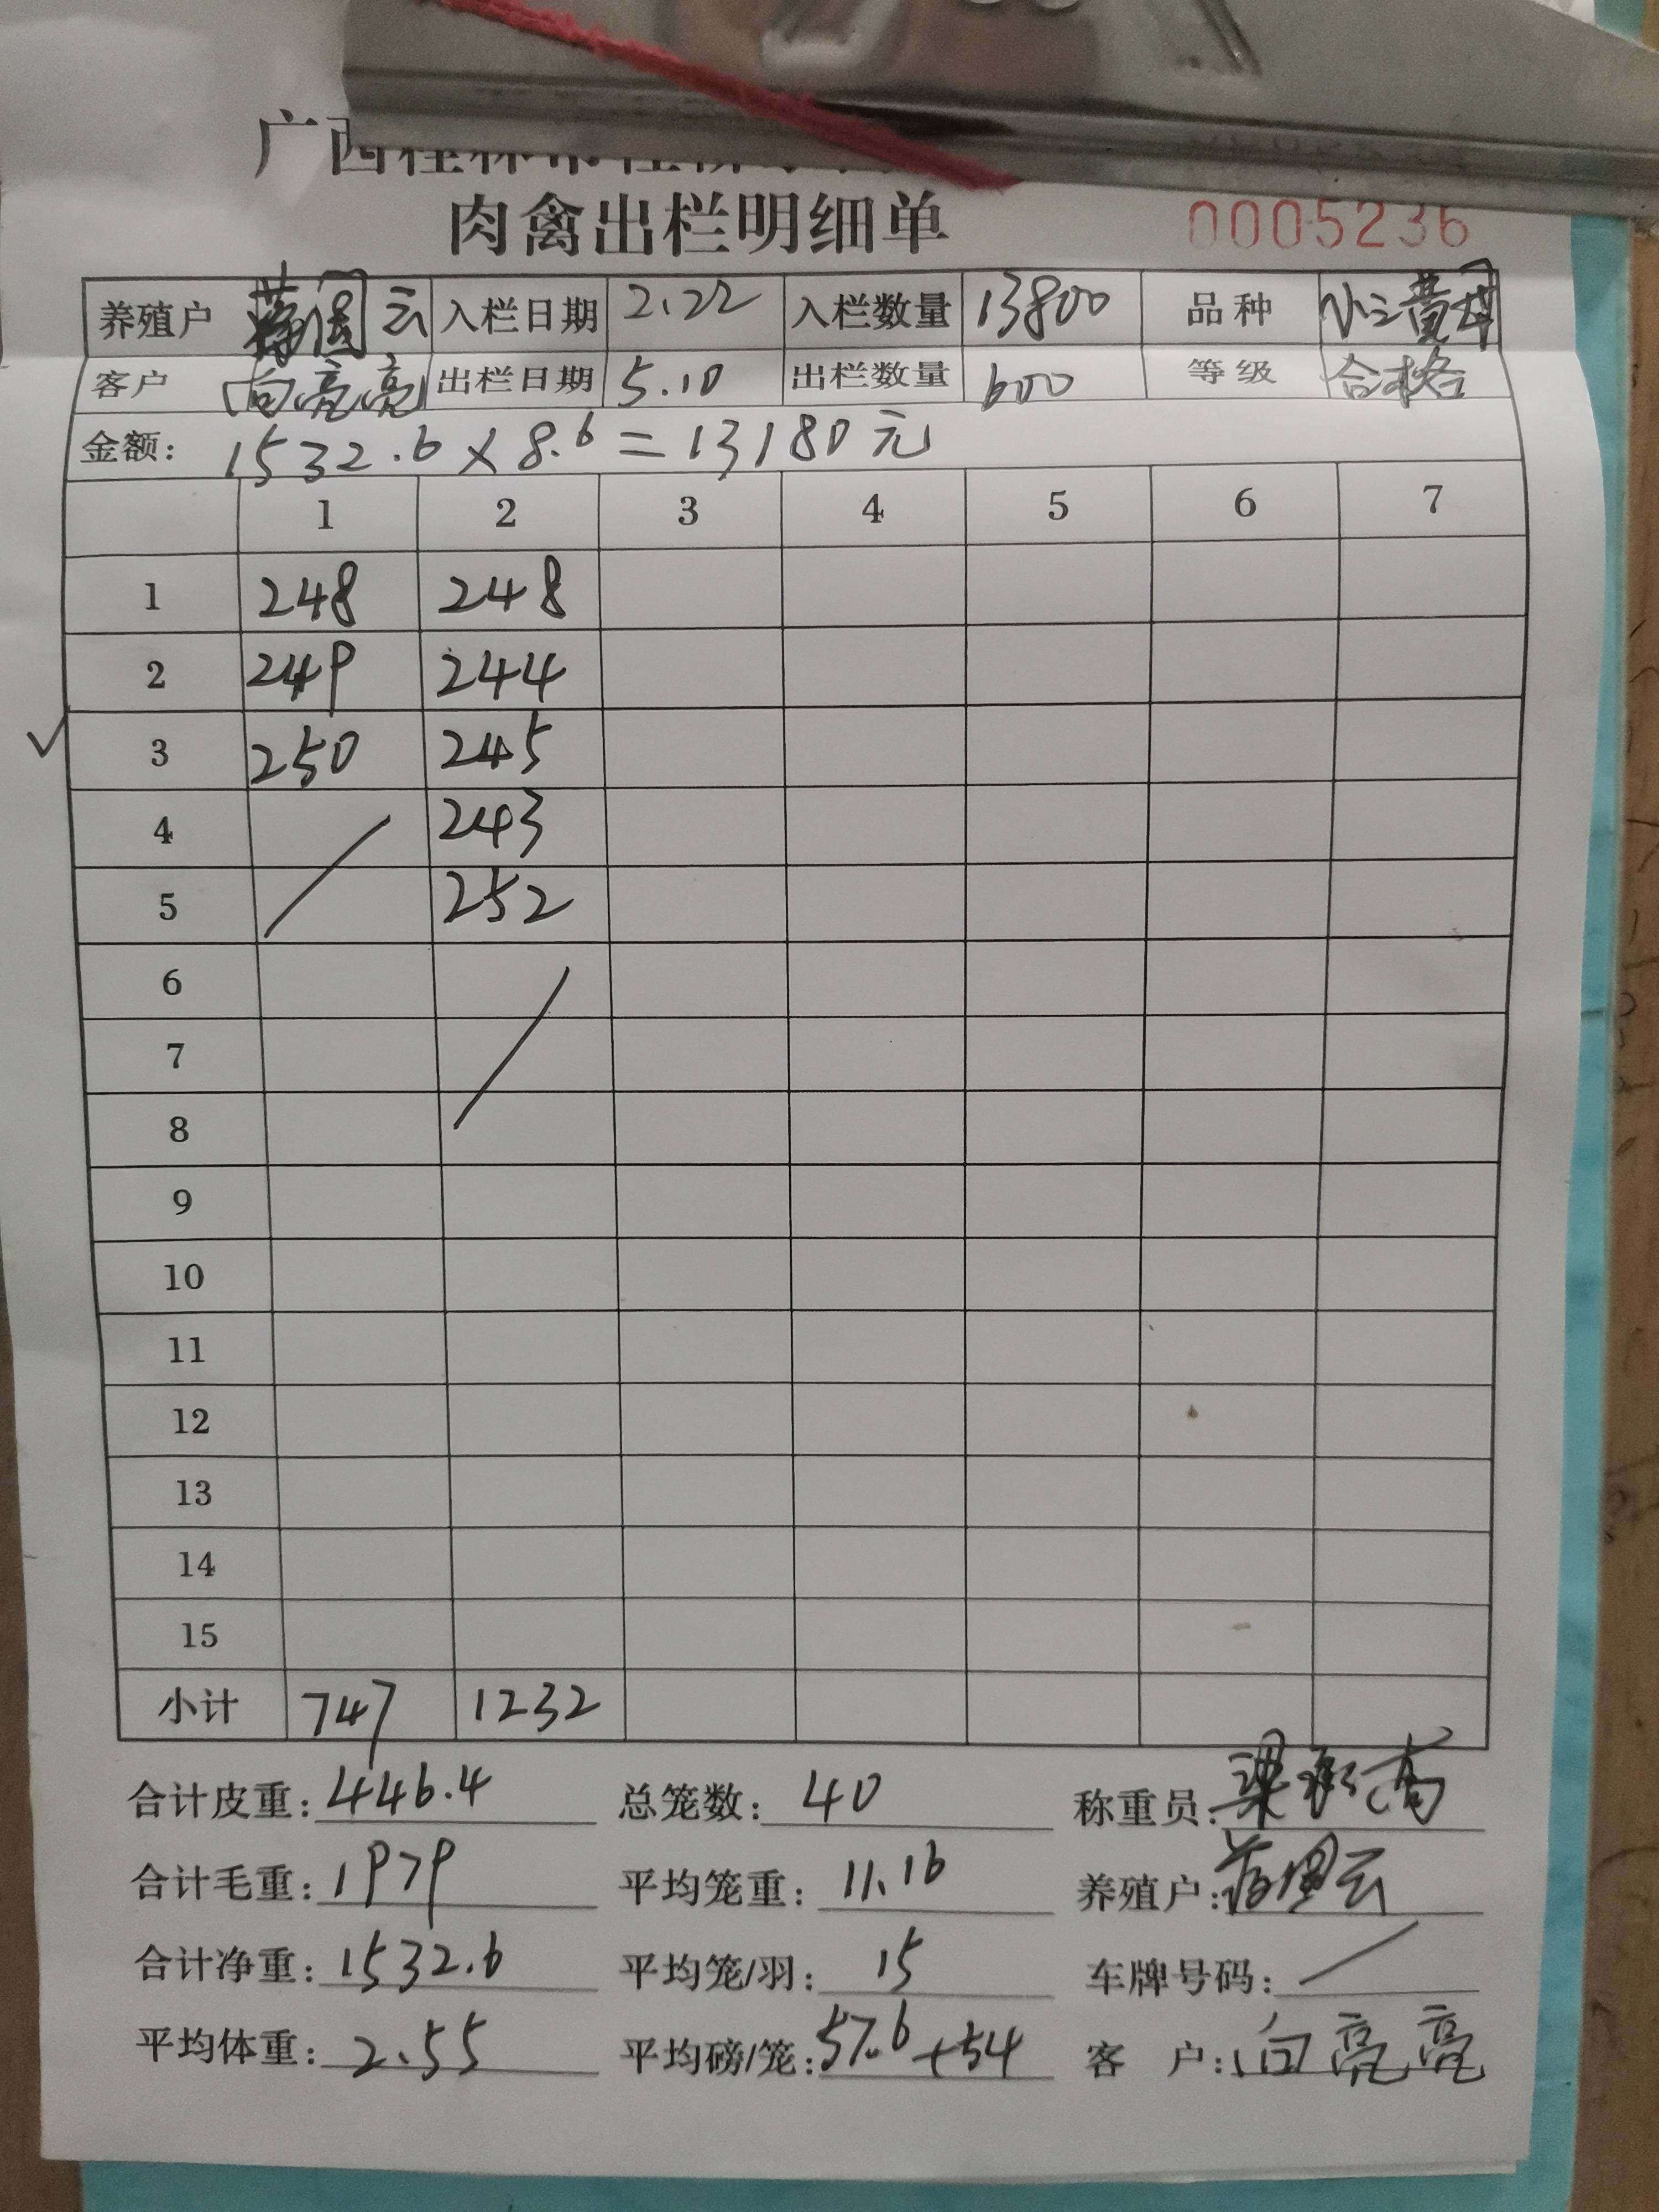 广西桂林市桂
肉禽出栏明细单 0005236
养殖户 蒋国云 入栏日期 2.22 入栏数量 13800 品种 小三黄母
客户 向亮亮 出栏日期 5.10 出栏数量 600 等级 合格
金额: 1532.6×8.6=13180元
1 2 3 4 5 6 7
1 248 248
2 249 244
3 250 245
4 243
5 252
6
7
8
9
10
11
12
13
14
15
小计 747 1232
合计皮重: 446.4 总笼数: 40 称重员: 梁
合计毛重: 1979 平均笼重: 11.16 养殖户: 蒋国云
合计净重: 1532.6 平均笼/羽: 15 车牌号码: /
平均体重: 2.55 平均磅/笼: 57.6+54 客 户: 向亮亮